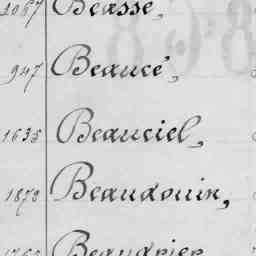 1067 Beasse,
947 Beaucé,
1635 Beauciel,
1878 Beaudouin,
Beaudrier